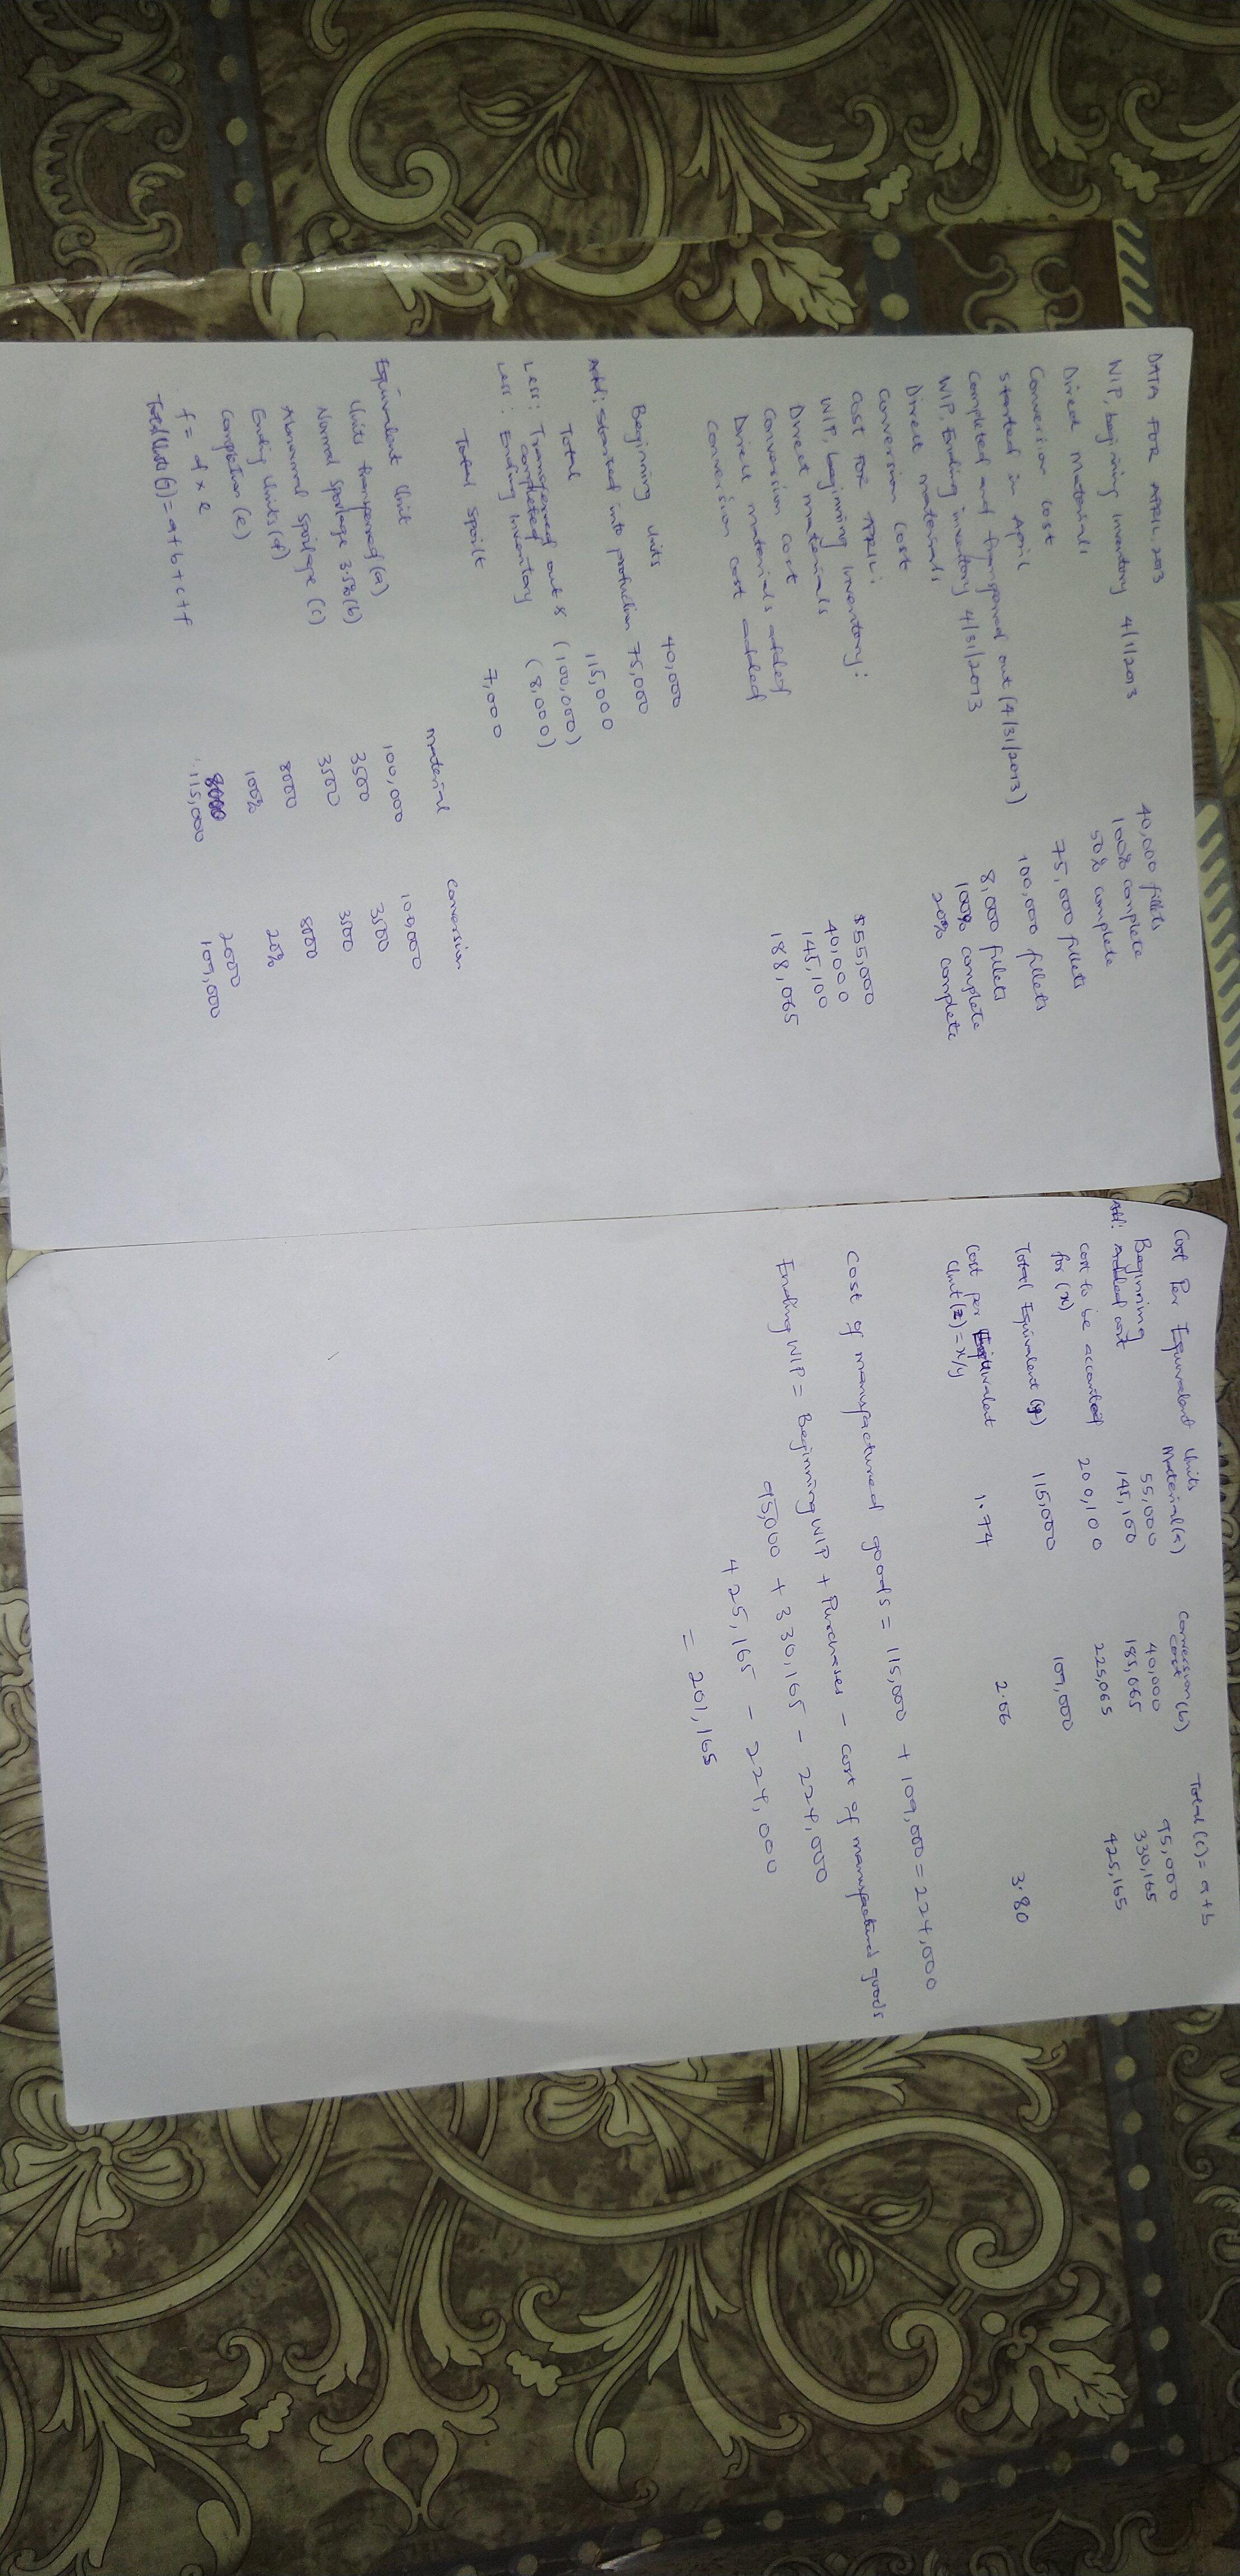 DATA FOR APRIL, 2013
WIP, beginning inventory 4/1/2013 40,000 fillets
Direct Materials 100% complete
Conversion cost 50% complete
Started in April 75,000 fillets
Completed and transferred out (4/31/2013) 100,000 fillets
WIP, Ending inventory 4/31/2013 8,000 fillets
Direct materials 100% complete
Conversion cost 20% complete
Cost for APRIL:
WIP, beginning Inventory:
Direct materials $55,000
Conversion cost 40,000
Direct materials added 145,100
Conversion cost added 188,065
Beginning Units 40,000
Add: Started into production 75,000
Total 115,000
Less: Transferred out & completed (100,000)
Less: Ending Inventory (8,000)
Total spoilt 7,000
Equivalent Unit Material Conversion
Units transferred (a) 100,000 100,000
Normal Spoilage 3.5% (b) 3500 3500
Abnormal Spoilage (c) 3500 3500
Ending Units (d) 8000 8000
Completion (e) 100% 20%
f = d x e 8000 2000
Total Units (g) = a + b + c + f 115,000 109,000
Cost Per Equivalent Units
Material (a) Conversion cost (b) Total (c) = a + b
Beginning 55,000 40,000 95,000
Add: Added cost 145,100 185,065 330,165
Cost to be accounted for (x) 200,100 225,065 425,165
Total Equivalent (y) 115,000 109,000
Cost per Equivalent Unit (z) = x/y 1.74 2.06 3.80
Cost of manufactured goods = 115,000 + 109,000 = 224,000
Ending WIP = Beginning WIP + Purchases - Cost of manufactured goods
95,000 + 330,165 - 224,000
425,165 - 224,000
= 201,165